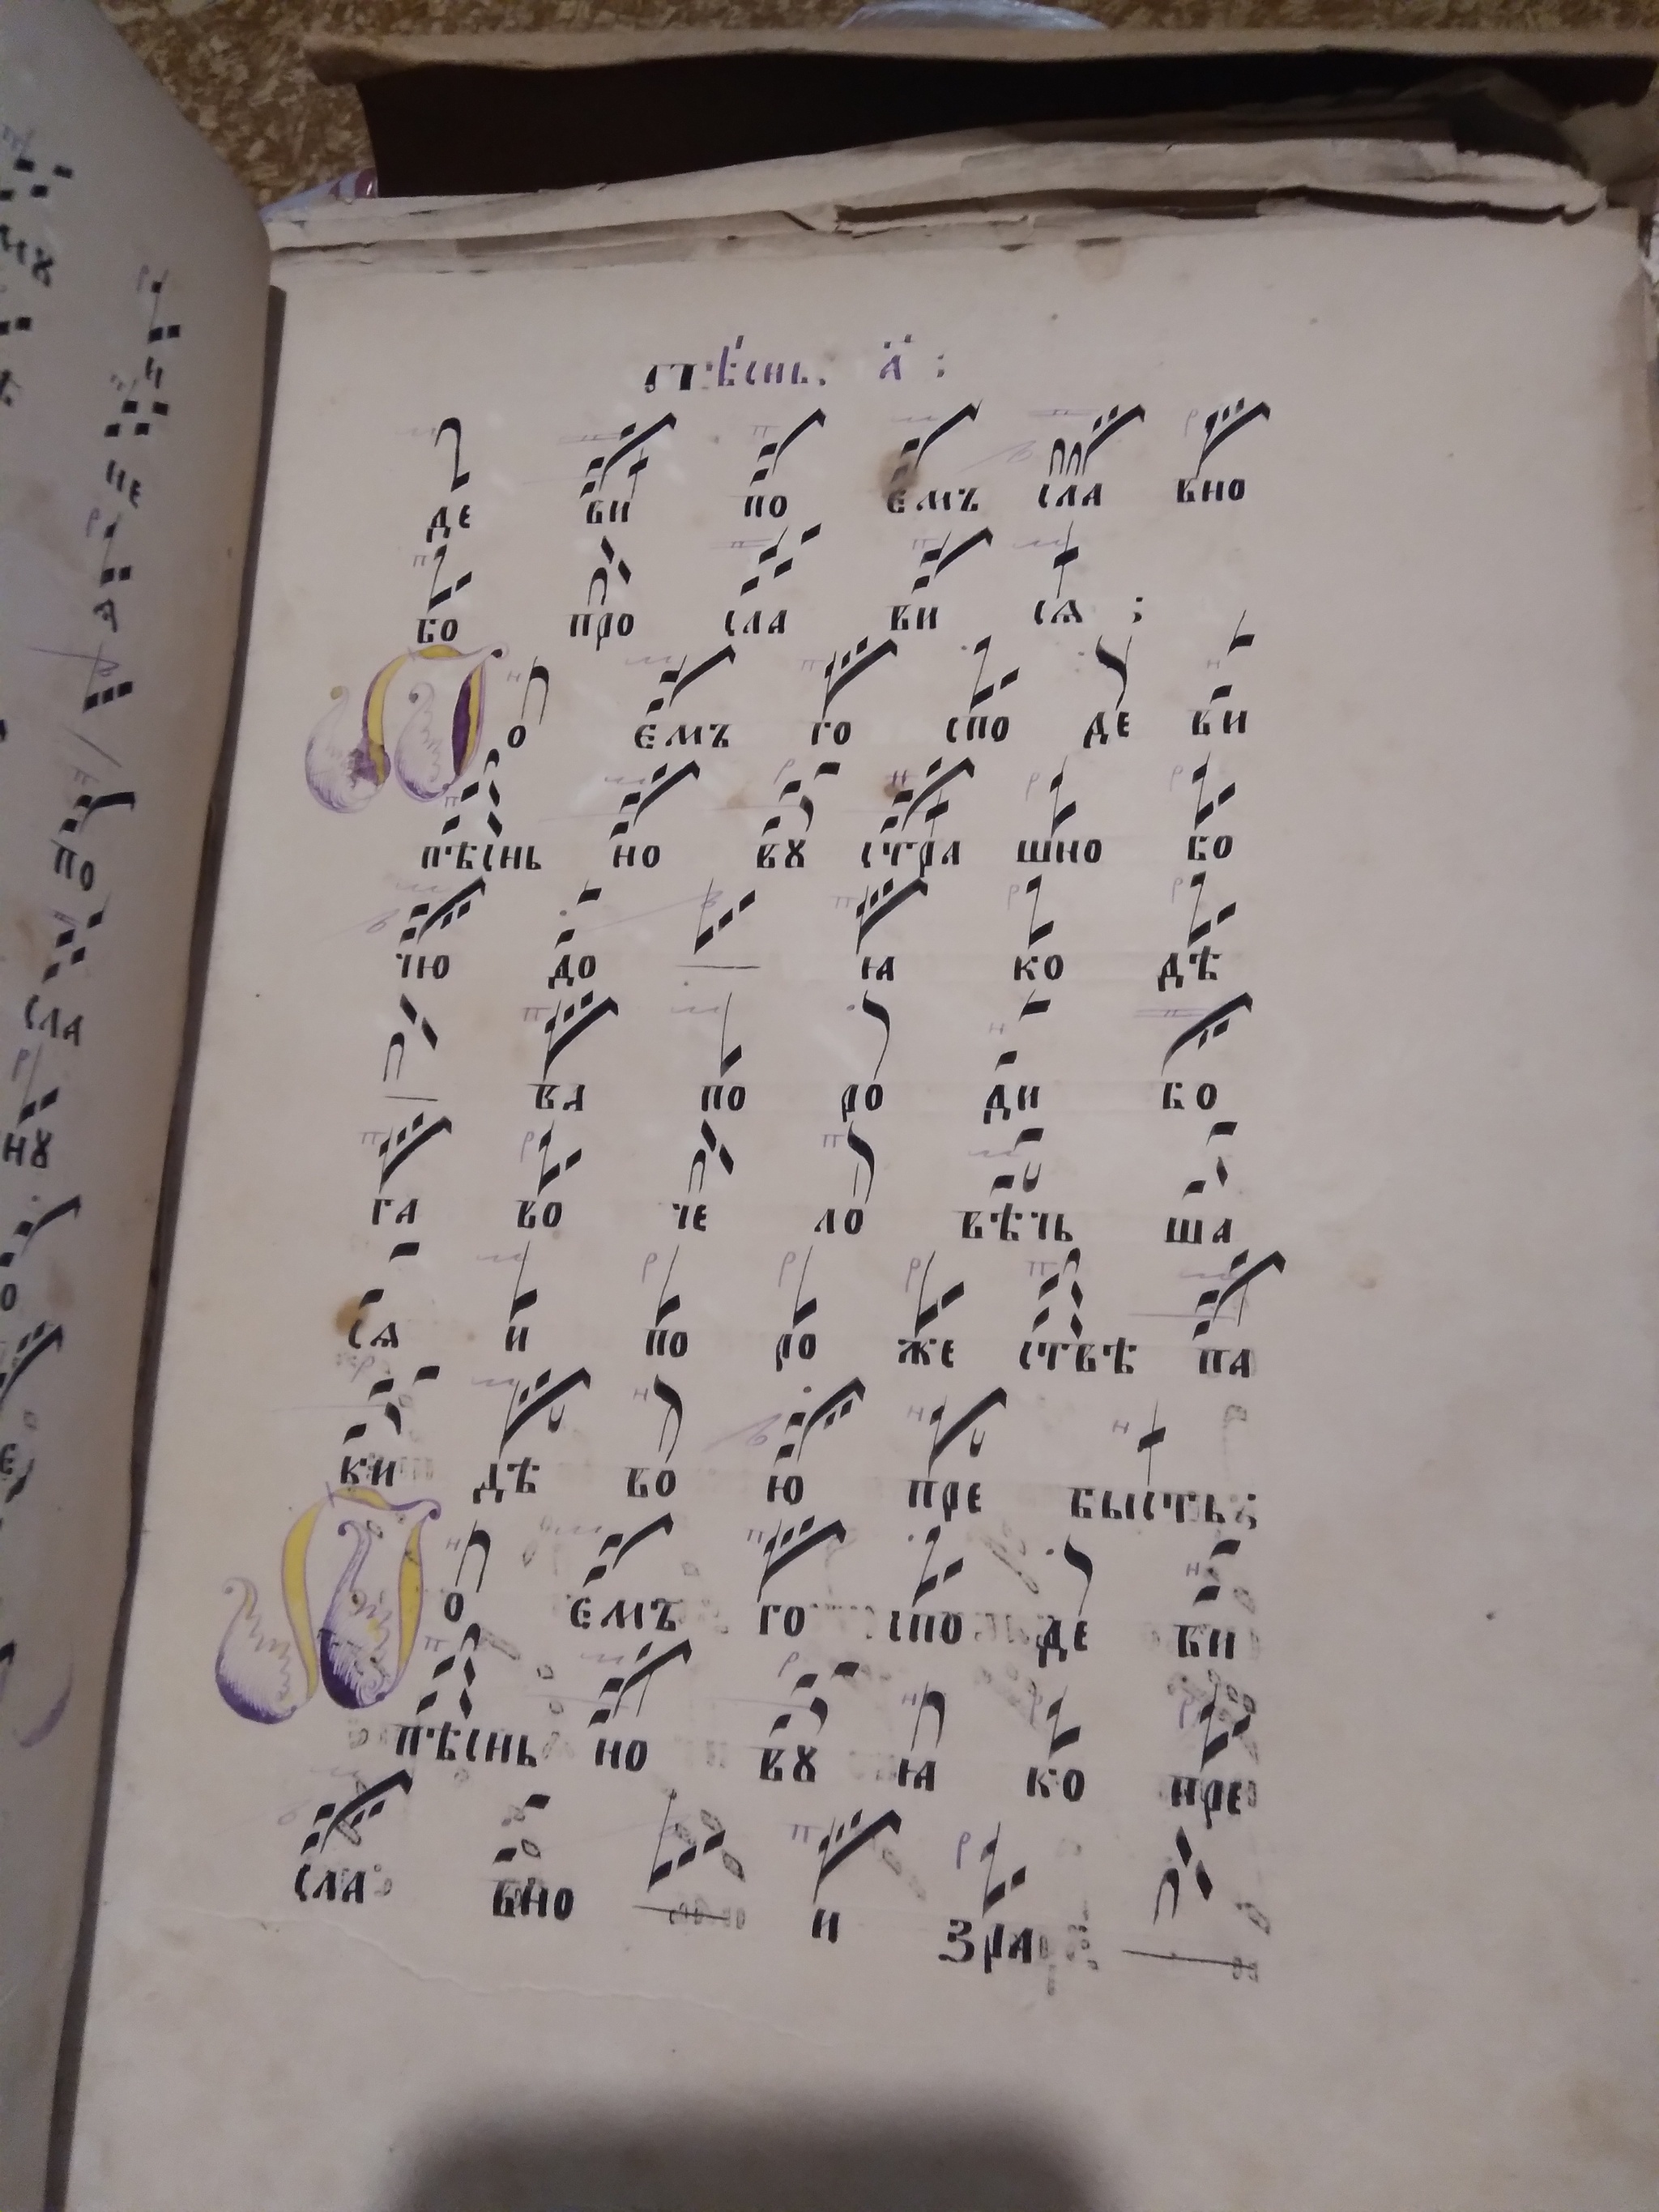 пѣснь. а҃ :
де ви по емъ сла вно
бо про сла ви сѧ :
П о емъ го спо де ви
пѣснь но вꙋ стра шно бо
чю до — ꙗ ко дѣ
— ва по ро ди бо
га во че ло вѣчь ша
сѧ и по ро же ствѣ па
ки дѣ во ю пре бысть :
П о емъ го спо де ви
пѣснь но вꙋ ꙗ ко пре
сла вно — и зра —
по
сла
нꙋ
не